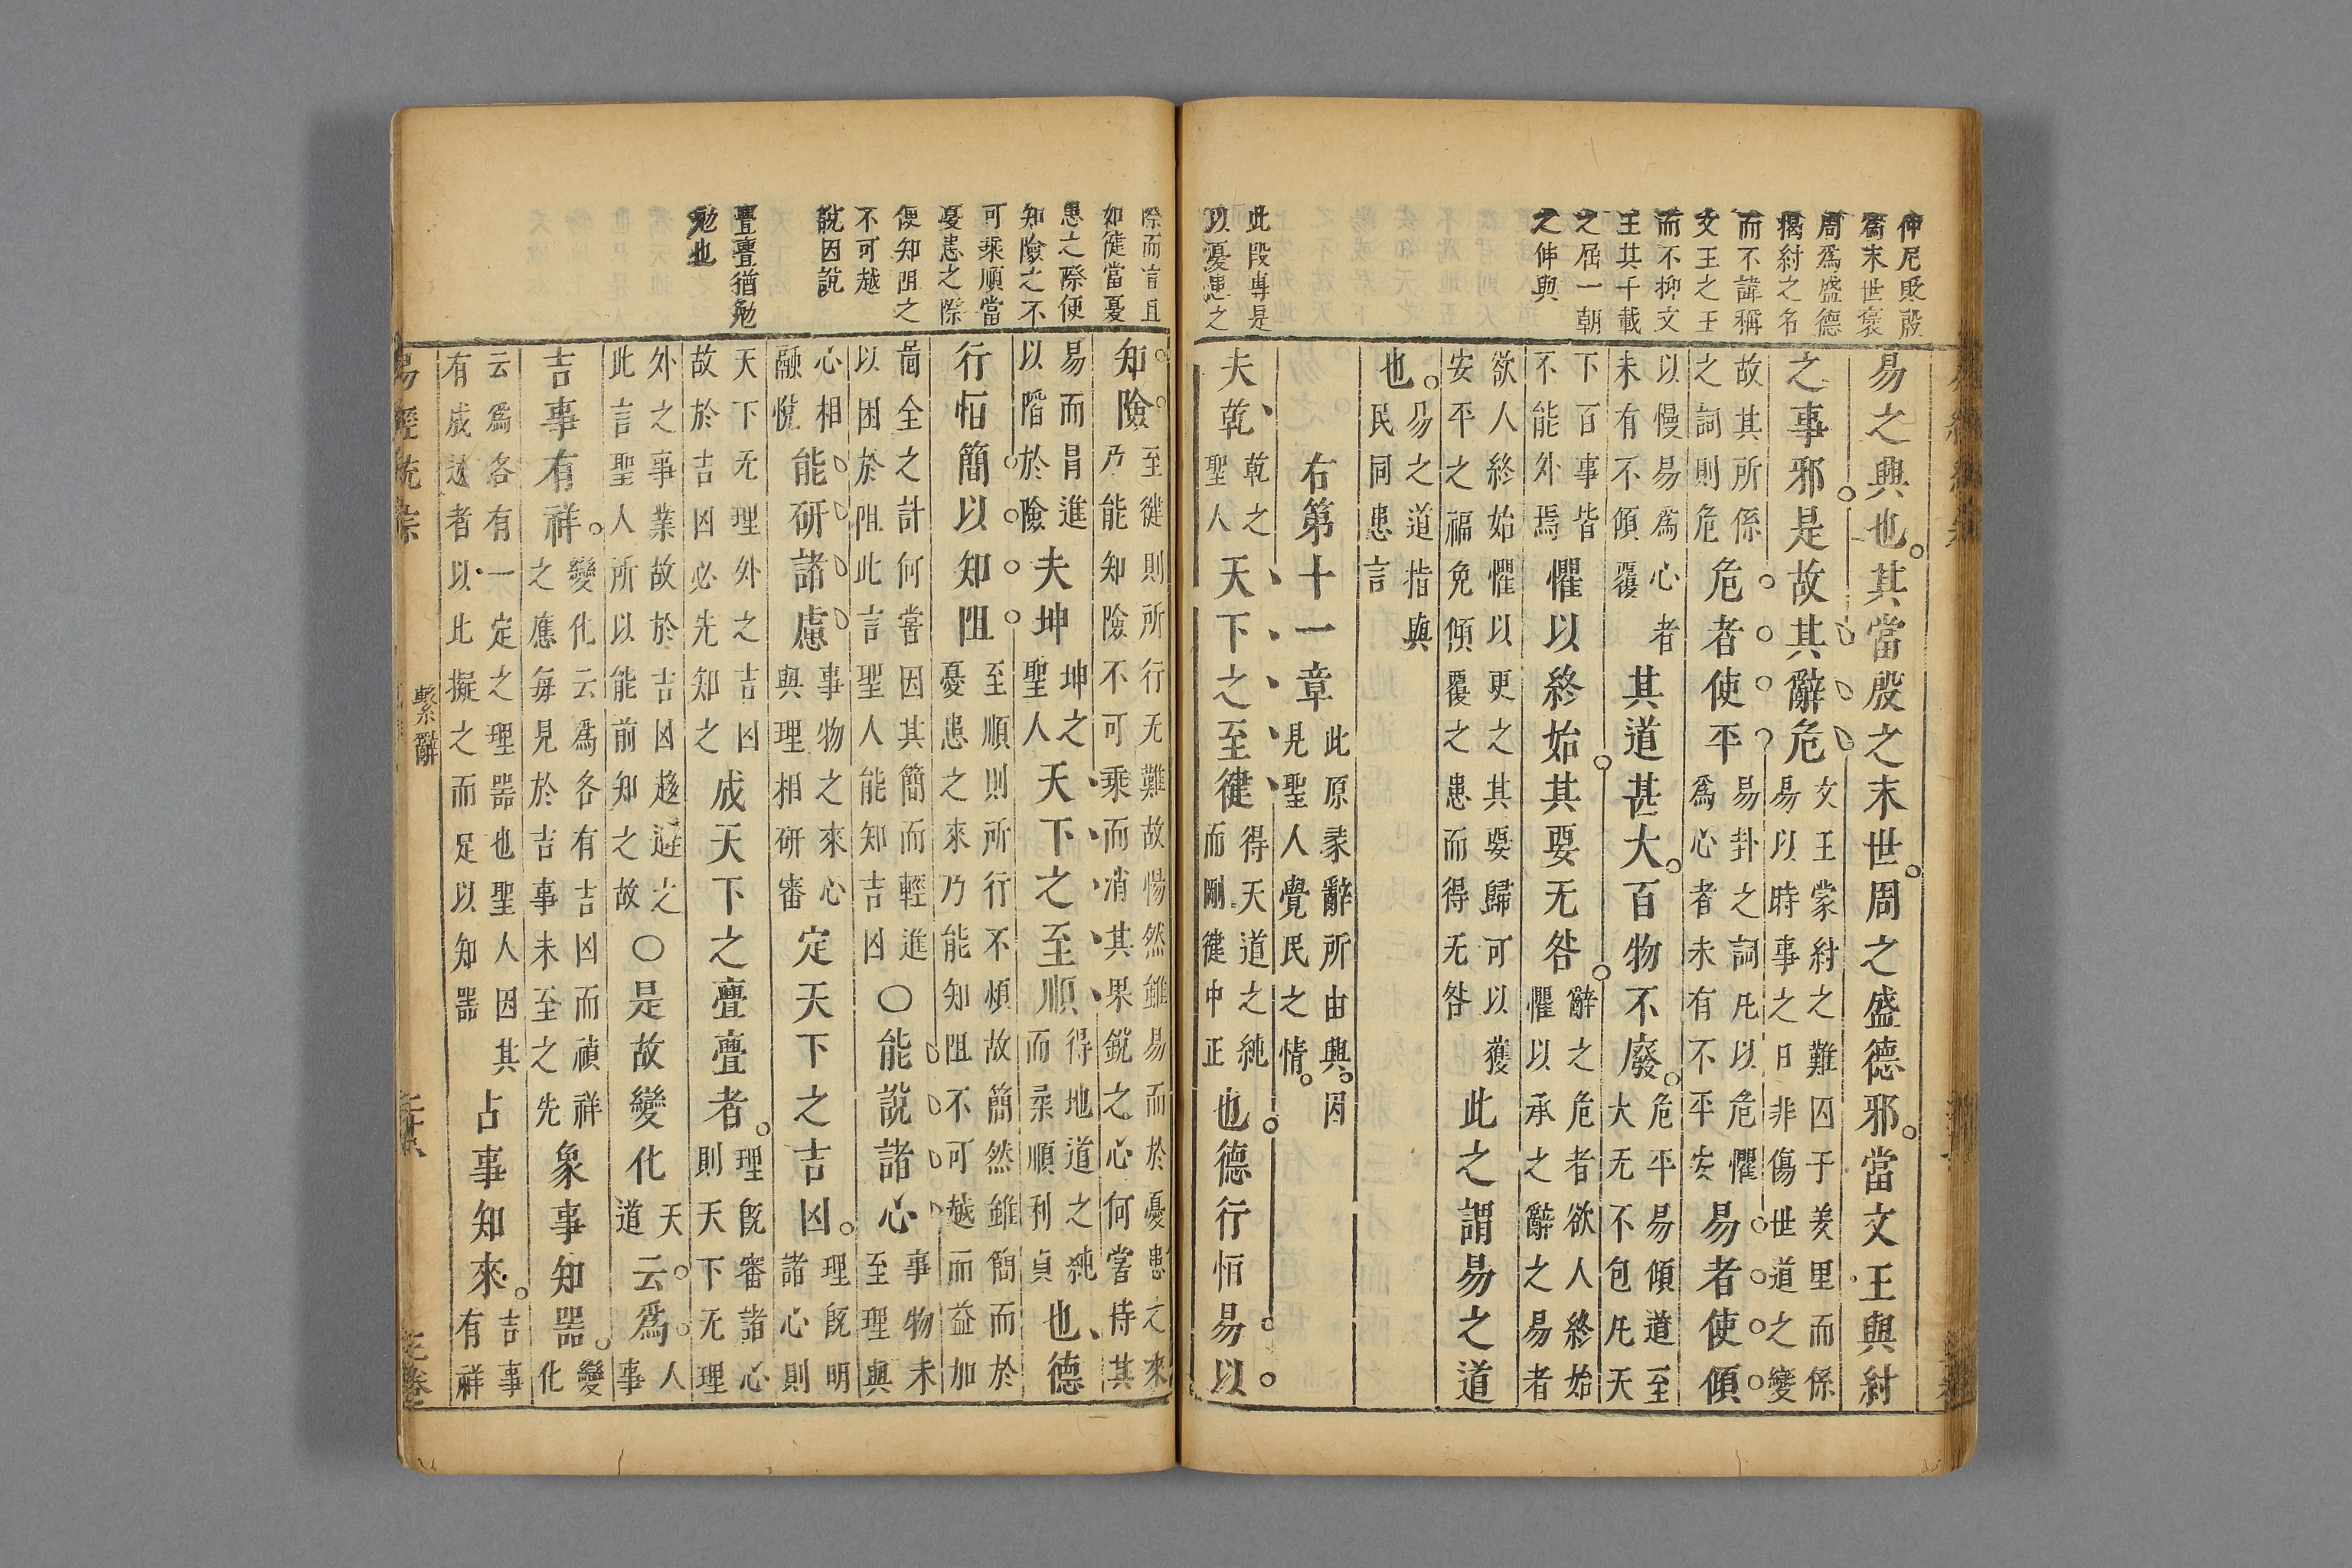 仲尼貶殷
爲末世褒
周爲盛德
揭紂之名
而不諱稱
文王之王
而不抑文
王其千載
之屈一朝
之伸與
此段專是
以憂患之
易之興也其當殷之末世周之盛德邪當文王與紂
之事邪是故其辭危文王蒙紂之難囚于羑里而係易以時事之日非傷世道之變
故其所係之詞則危危者使平易卦之詞凡以危懼爲心者未有不平安易者使傾
以慢易爲心者未有不傾覆其道甚大百物不廢危平易傾道至大无不包凡天
下百事皆不能外焉懼以終始其要无咎辭之危者欲人終始懼以承之辭之易者
欲人終始懼以更之其要歸可以獲安平之福免傾覆之患而得无咎此之謂易之道
也易之道指與民同患言
右第十一章此原彖辭所由興因見聖人覺民之情
夫乾乾之聖人天下之至健得天道之純而剛健中正也德行恒易以
際而言且
如健當憂
患之際便
知險之不
可乘順當
憂患之際
便知阻之
不可越
說因說
亹亹猶勉
勉也
知險至健則所行无難故惕然雖易而於憂患之來乃能知險不可乘而消其果銳之心何嘗恃其
易而冐進以陷於險夫坤坤之聖人天下之至順得地道之純而柔順利貞也德
行恒簡以知阻至順則所行不煩故簡然雖簡而於憂患之來乃能知阻不可越而益加
啚全之計何嘗因其簡而輕進以困於阻此言聖人能知吉凶〇能說諸心事物未至理與
心相融悅能研諸慮事物之來心與理相研審定天下之吉凶理旣明諸心則
天下无理外之吉凶故於吉凶必先知之成天下之亹亹者理旣審諸心則天下无理
外之事業故於吉凶趨避之此言聖人所以能前知之故〇是故變化天道云爲人事
吉事有祥變化云爲各有吉凶而禎祥之應每見於吉事未至之先象事知器變化
云爲各有一定之理器也聖人因其有成迹者以此擬之而足以知器占事知來吉事有祥
易經統宗
繫辭